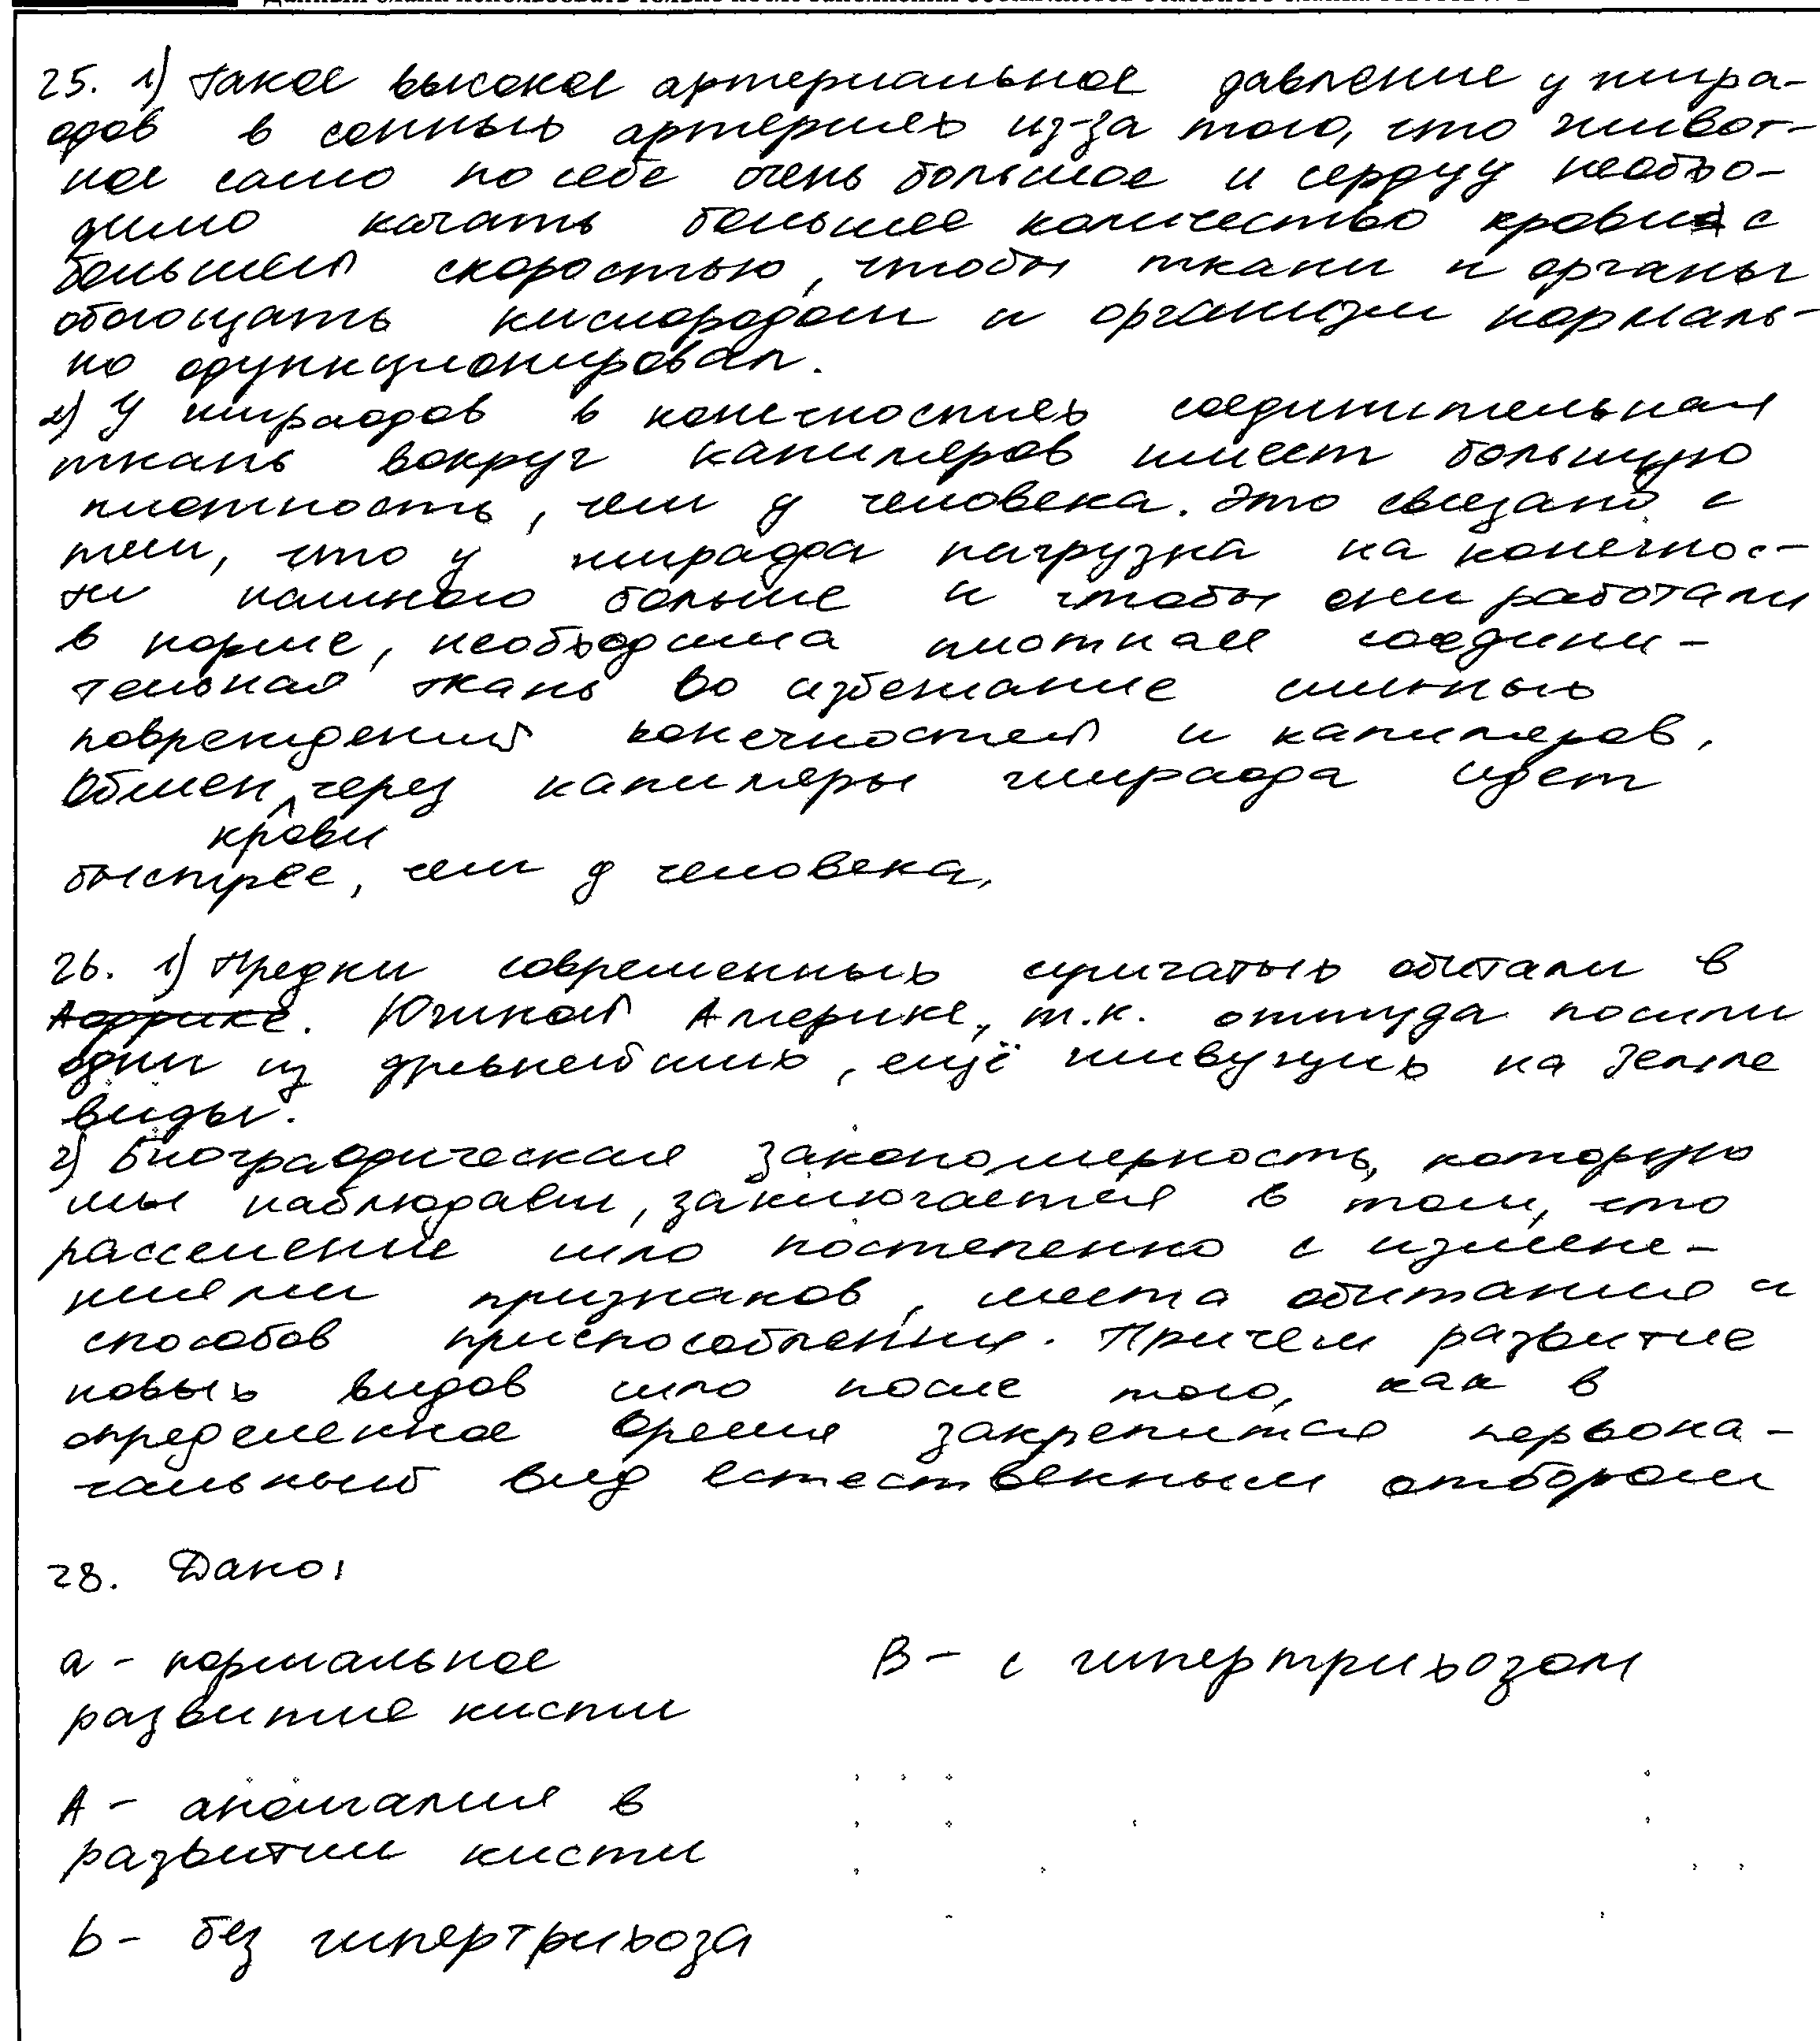 25. 1) Такое высокое артериальное давление у жира-
фов в сонных артериях из-за того, что живот-
ное само по себе очень большое и сердцу необхо-
димо качать большее количество крови с
большей скоростью, чтобы ткани и органы
обогащать кислородом и организм нормаль-
но функционировал.
2) У жирафов в конечностях соединительная
ткань вокруг капиляров имеет большую
плотность, чем у человека. Это связано с
тем, что у жирафа нагрузка на конечнос-
ти намного больше и чтобы они работали
в норме, необходима плотная соедини-
тельная ткань во избежание сильных
повреждений конечностей и капиляров.
Обмен крови через капиляры жирафа идет
быстрее, чем у человека.
26. 1) Предки современных сумчатых обитали в
Африке. Южной Америке, т.к. оттуда пошли
одни из древнейших, ещё живущих на Земле
виды.
2) Биографическая закономерность, которую
мы наблюдаем, заключается в том, что
расселение шло постепенно с измене-
ниями признаков, места обитания и
способов приспособления. Причем развитие
новых видов шло после того, как в
определенное время закрепится первона-
чальный вид естественным отбором
28. Дано:
a - нормальное B - с гипертрихозом
развитие кисти
A - аномалия в
развитии кисти
b - без гипертрихоза